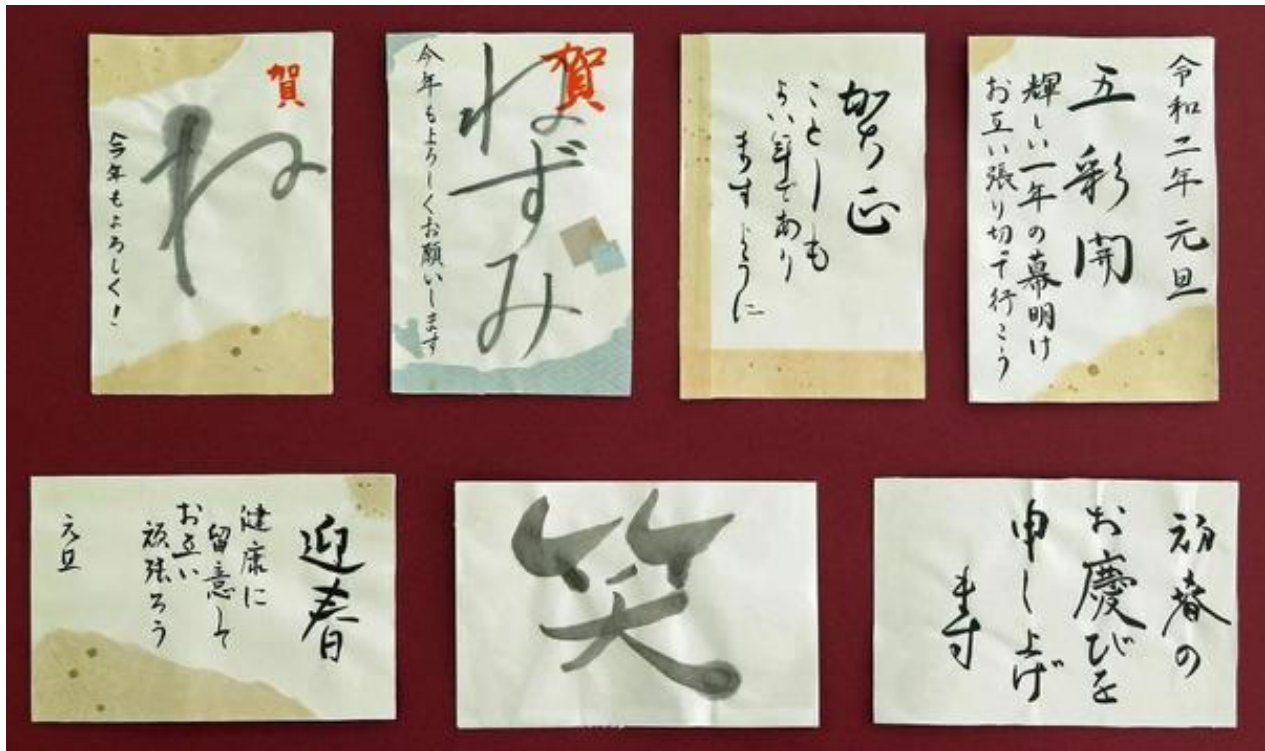 賀
ね
今年もよろしく!
賀
ねずみ
今年もよろしくお願いします
賀正
ことしも
よい年であり
ますように
令和二年 元旦
五彩開
輝しい一年の幕明け
お互い張り切って行こう
迎春
健康に
留意して
お互い
頑張ろう
元旦
笑
初春の
お慶びを
申し上げ
ます